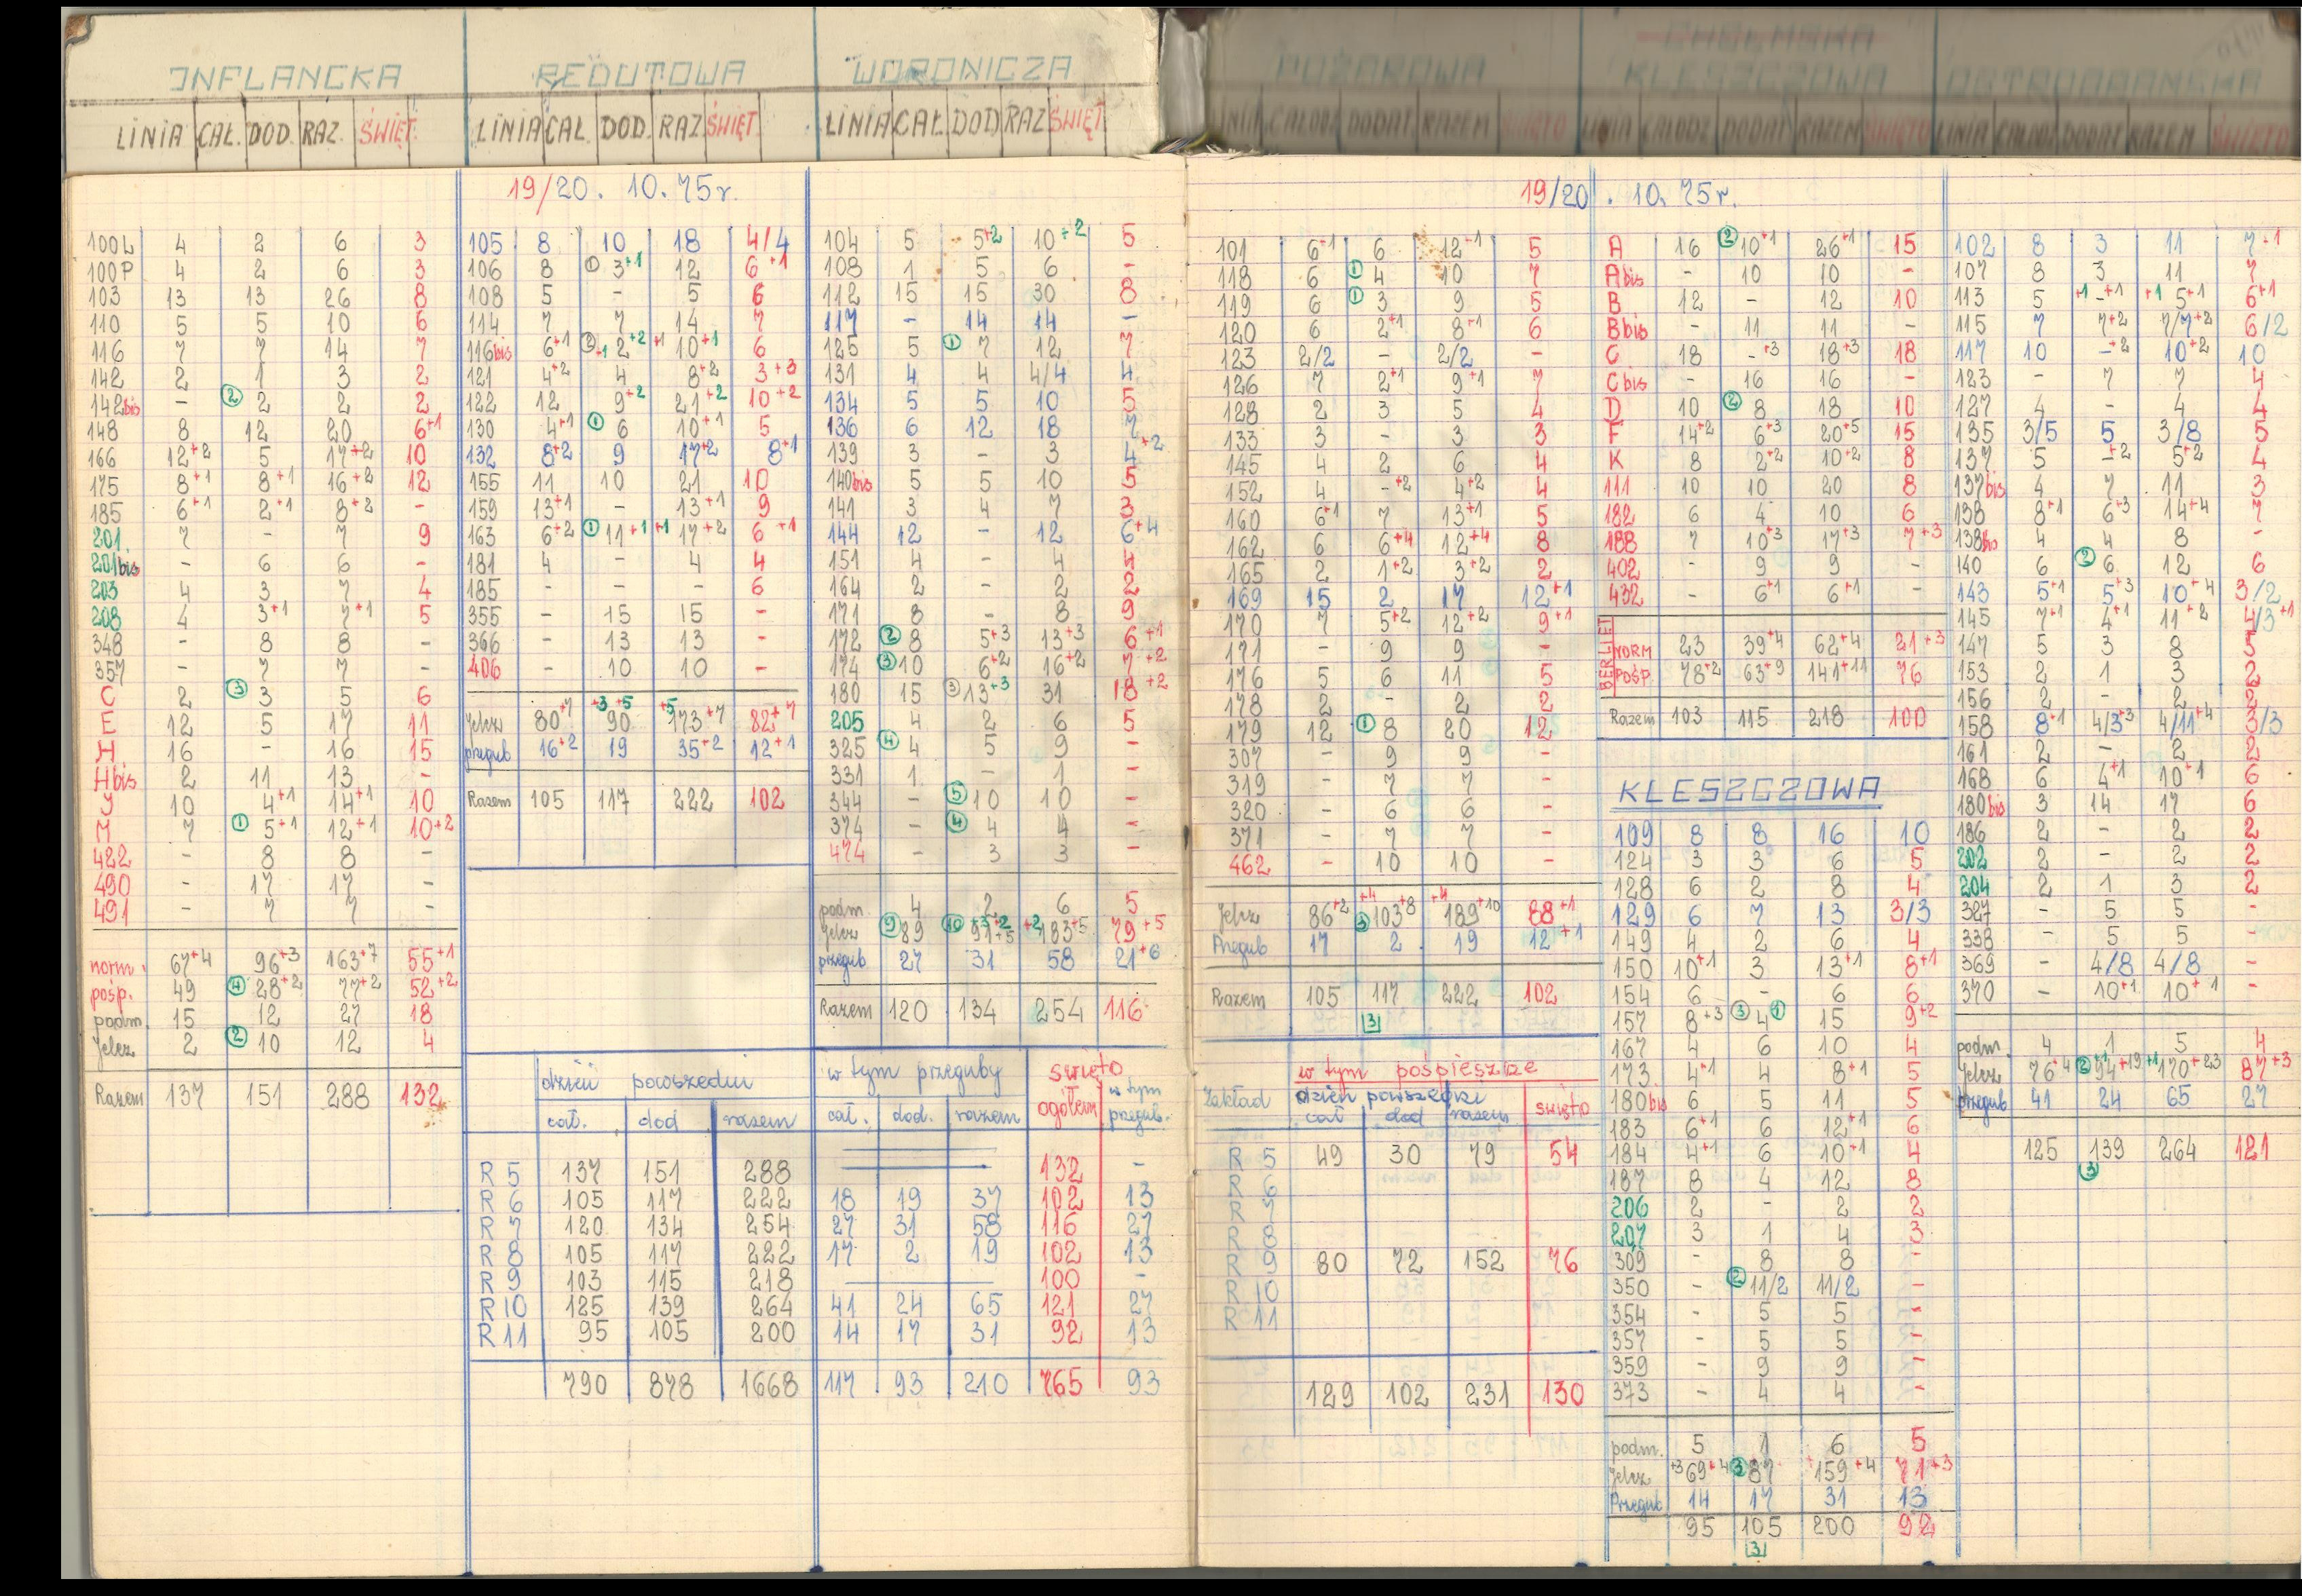 INFLANCKA
LINIA CAŁ. DOD. RAZ. ŚWIĘT.
100L 4 2 6 3
100P 4 2 6 3
103 13 13 26 8
110 5 5 10 6
116 7 7 14 7
142 2 1 3 2
142bis - ② 2 2 2
148 8 12 20 6+1
166 12+2 5 17+2 10
175 8+1 8+1 16+2 12
185 6+1 2+1 8+2 -
201 7 - 7 9
201bis - 6 6 -
203 4 3 7 4
208 4 3+1 7+1 5
348 - 8 8 -
357 - 7 7 -
C 2 ③ 3 5 6
E 12 5 17 11
H 16 - 16 15
Hbis 2 11 13 -
J 10 4+1 14+1 10
M 7 ① 5+1 12+1 10+2
422 - 8 8 -
490 - 17 17 -
491 - 7 7 -
norm. 67+4 96+3 163+7 55+1
pośp. 49 ④ 28+2 77+2 52+2
podm 15 12 27 18
Jelcz 2 ② 10 12 4
Razem 137 151 288 132
REDUTOWA
LINIA CAŁ. DOD. RAZ. ŚWIĘT.
19/20. 10. 75r.
105 8 10 18 4/4
106 8 ① 3+1 12 6+1
108 5 - 5 6
114 7 7 14 7
116bis 6+1 ② +1 2+2 +1 10+1 6
121 4+2 4 8+2 3+3
122 12 9+2 21+2 10+2
130 4+1 ① 6 10+1 5
132 8+2 9 17+2 8+1
155 11 10 21 10
159 13+1 - 13+1 9
163 6+2 ① 11+1 +1 17+2 6+1
181 4 - 4 4
185 - - - 6
355 - 15 15 -
366 - 13 13 -
406 - 10 10 -
Jelcz 80+7 +3 +5 90 +5 173+7 82+7
przegub 16+2 19 35+2 12+1
Razem 105 117 222 102
WORONICZA
LINIA CAŁ DOD RAZ ŚWIĘT
104 5 5+2 10+2 5
108 1 5 6 -
112 15 15 30 8
117 - 14 14 -
125 5 ① 7 12 7
131 4 4 4/4 4
134 5 5 10 5
136 6 12 18 7
139 3 - 3 4+2
140bis 5 5 10 5
141 3 4 7 3
144 12 - 12 6+4
151 4 - 4 4
164 2 - 2 2
171 8 - 8 9
172 ② 8 5+3 13+3 6+1
174 ③ 10 6+2 16+2 7+2
180 15 ③ 13+3 31 18+2
205 4 2 6 5
325 ④ 4 5 9 -
331 1 - 1 -
344 - ⑤ 10 10 -
374 - ④ 4 4 -
474 - 3 3 -
podm. 4 2 6 5
Jelcz ⑨ 89 ⑩ 91+5 +2 183+5 79+5
przegub 27 31 58 21+6
Razem 120 134 254 116
dzień powszedni w tym przeguby święto
cał. dod razem cał. dod. razem ogółem w tym przegub.
R 5 137 151 288 132 -
R 6 105 117 222 18 19 37 102 13
R 7 120 134 254 27 31 58 116 27
R 8 105 117 222 17 2 19 102 13
R 9 103 115 218 100 -
R 10 125 139 264 41 24 65 121 27
R 11 95 105 200 14 17 31 92 13
790 878 1668 117 93 210 765 93
POŻAROWA
LINIA CAŁODZ DODAT. RAZEM ŚWIĘTO
19/20. 10. 75r.
101 6-1 6 12-1 5
118 6 ① 4 10 7
119 6 ① 3 9 5
120 6 2+1 8+1 6
123 2/2 - 2/2 -
126 7 2+1 9+1 7
128 2 3 5 4
133 3 - 3 3
145 4 2 6 4
152 4 -+2 4+2 4
160 6+1 7 13+1 5
162 6 6+4 12+4 8
165 2 1+2 3+2 2
169 15 2 17 12+1
170 7 5+2 12+2 9+1
171 - 9 9 -
176 5 6 11 5
178 2 - 2 2
179 12 ① 8 20 12
307 - 9 9 -
319 - 7 7 -
320 - 6 6 -
371 - 7 7 -
462 - 10 10 -
Jelcz 86+2 +4 ③ 103+8 +4 189+10 88+1
Przegub 17 2 19 12+1
Razem 105 117 222 102
3
w tym pośpieszne
Zakład dzień powszedni święto
cał dod razem
R 5 49 30 79 54
R 6
R 7
R 8
R 9 80 72 152 76
R 10
R 11
129 102 231 130
CHEŁMSKA
KLESZCZOWA
LINIA CAŁODZ DODAT RAZEM ŚWIĘTO
A 16 ② 10+1 26+1 15
A bis - 10 10 -
B 12 - 12 10
B bis - 11 11 -
C 18 -+3 18+3 18
C bis - 16 16 -
D 10 ② 8 18 10
F 14+2 6+3 20+5 15
K 8 2+2 10+2 8
111 10 10 20 8
182 6 4 10 6
188 7 10+3 17+3 7+3
402 - 9 9 -
432 - 6+1 6+1 -
BERLIET
NORM 23 39+4 62+4 21+3
POŚP 78+2 63+9 141+11 76
Razem 103 115 218 100
KLESZCZOWA
109 8 8 16 10
124 3 3 6 5
128 6 2 8 4
129 6 7 13 3/3
149 4 2 6 4
150 10+1 3 13+1 8+1
154 6 - 6 6
157 8+3 ③ 4 ① 15 9+2
167 4 6 10 4
173 4+1 4 8+1 5
180bis 6 5 11 5
183 6+1 6 12+1 6
184 4+1 6 10+1 4
187 8 4 12 8
206 2 - 2 2
207 3 1 4 3
309 - 8 8 -
350 - ② 11/2 11/2 -
354 - 5 5 -
357 - 5 5 -
359 - 9 9 -
373 - 4 4 -
podm. 5 1 6 5
Jelcz +3 69+4 ③ 87 159+4 71+3
Przegub 14 17 31 13
95 105 200 92
3
OSTROBRAMSKA
LINIA CAŁODZ DODAT RAZEM ŚWIĘTO
102 8 3 11 7+1
107 8 3 11 7
113 5 +1 -+1 +1 5+1 6+1
115 7 7+2 7/7+2 6/2
117 10 -+2 10+2 10
123 - 7 7 4
127 4 - 4 4
135 3/5 5 3/8 5
137 5 -+2 5+2 4
137bis 4 7 11 3
138 8+1 6+3 14+4 7
138bis 4 4 8 -
140 6 ② 6 12 6
143 5+1 5+3 10+4 3/2
145 7+1 4+1 11+2 4/3+1
147 5 3 8 5
153 2 1 3 2
156 2 - 2 2
158 8+1 4/3+3 4/11+4 3/3
161 2 - 2 2
168 6 4+1 10+1 6
180bis 3 14 17 6
186 2 - 2 2
202 2 - 2 2
204 2 1 3 2
327 - 5 5 -
338 - 5 5 -
369 - 4/8 4/8 -
370 - 10+1 10+1 -
podm. 4 1 5 4
Jelcz 76+4 ② 94+19 +1 170+23 87+3
przegub 41 24 65 27
125 139 264 121
③